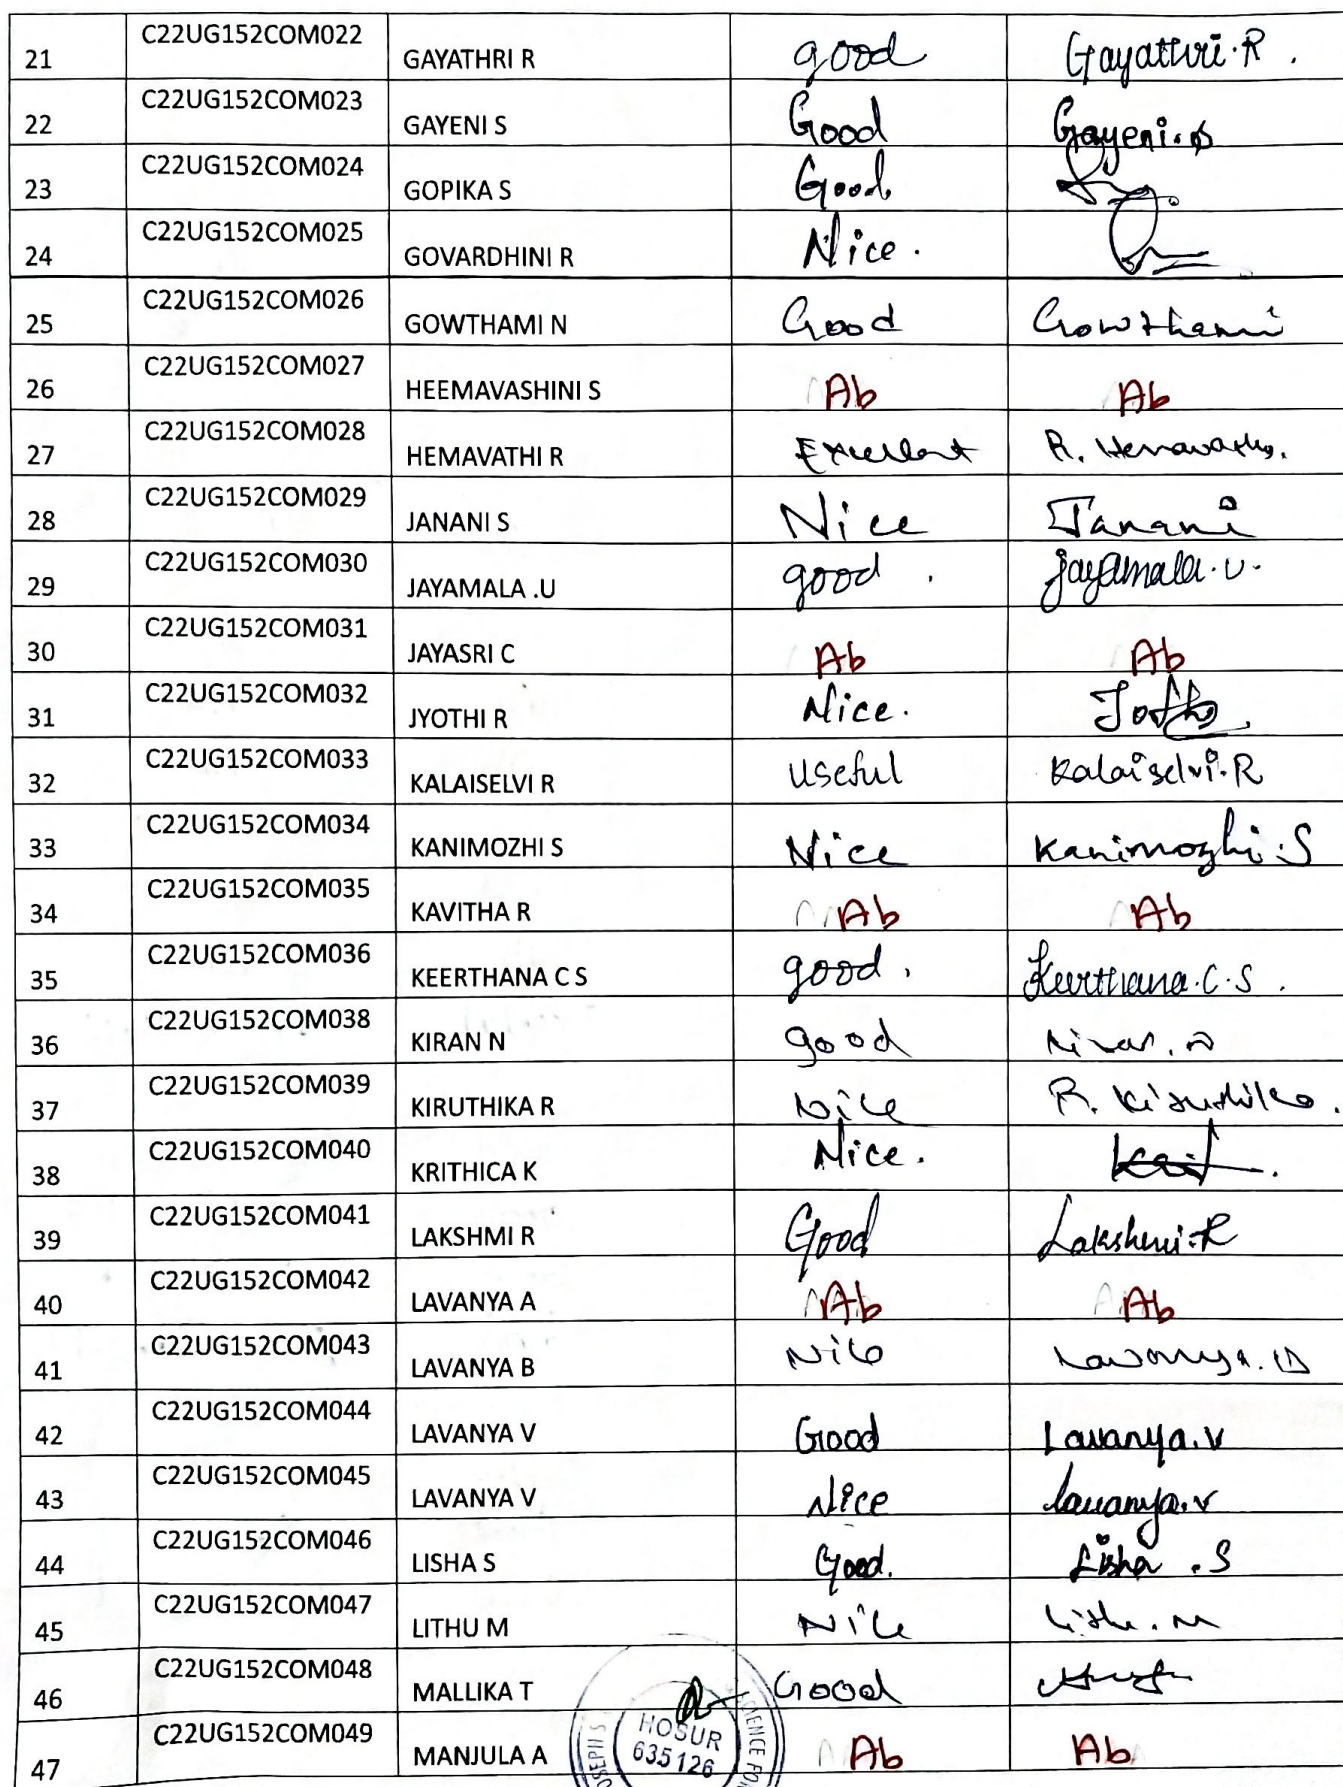 21 C22UG152COM022 GAYATHRI R good Gayathri.R.
22 C22UG152COM023 GAYENI S Good Gayeni.S
23 C22UG152COM024 GOPIKA S Good
24 C22UG152COM025 GOVARDHINI R Nice.
25 C22UG152COM026 GOWTHAMI N Good Gowthami
26 C22UG152COM027 HEEMAVASHINI S Ab Ab
27 C22UG152COM028 HEMAVATHI R Excellent R. Hemavathi.
28 C22UG152COM029 JANANI S Nice Janani
29 C22UG152COM030 JAYAMALA .U good. jayamala.U.
30 C22UG152COM031 JAYASRI C Ab Ab
31 C22UG152COM032 JYOTHI R Nice.
32 C22UG152COM033 KALAISELVI R useful Kalaiselvi.R
33 C22UG152COM034 KANIMOZHI S Nice Kanimozhi.S
34 C22UG152COM035 KAVITHA R Ab Ab
35 C22UG152COM036 KEERTHANA C S good. Keerthana.C.S.
36 C22UG152COM038 KIRAN N good Kiran.N
37 C22UG152COM039 KIRUTHIKA R Nice R. Kiruthika.
38 C22UG152COM040 KRITHICA K Nice.
39 C22UG152COM041 LAKSHMI R Good Lakshmi.R
40 C22UG152COM042 LAVANYA A Ab Ab
41 C22UG152COM043 LAVANYA B Nice Lavanya.B
42 C22UG152COM044 LAVANYA V Good Lavanya.V
43 C22UG152COM045 LAVANYA V Nice lavanya.v
44 C22UG152COM046 LISHA S Good. Lisha.S
45 C22UG152COM047 LITHU M Nice Lithu.M
46 C22UG152COM048 MALLIKA T Good
47 C22UG152COM049 MANJULA A Ab Ab
HOSUR
635 126